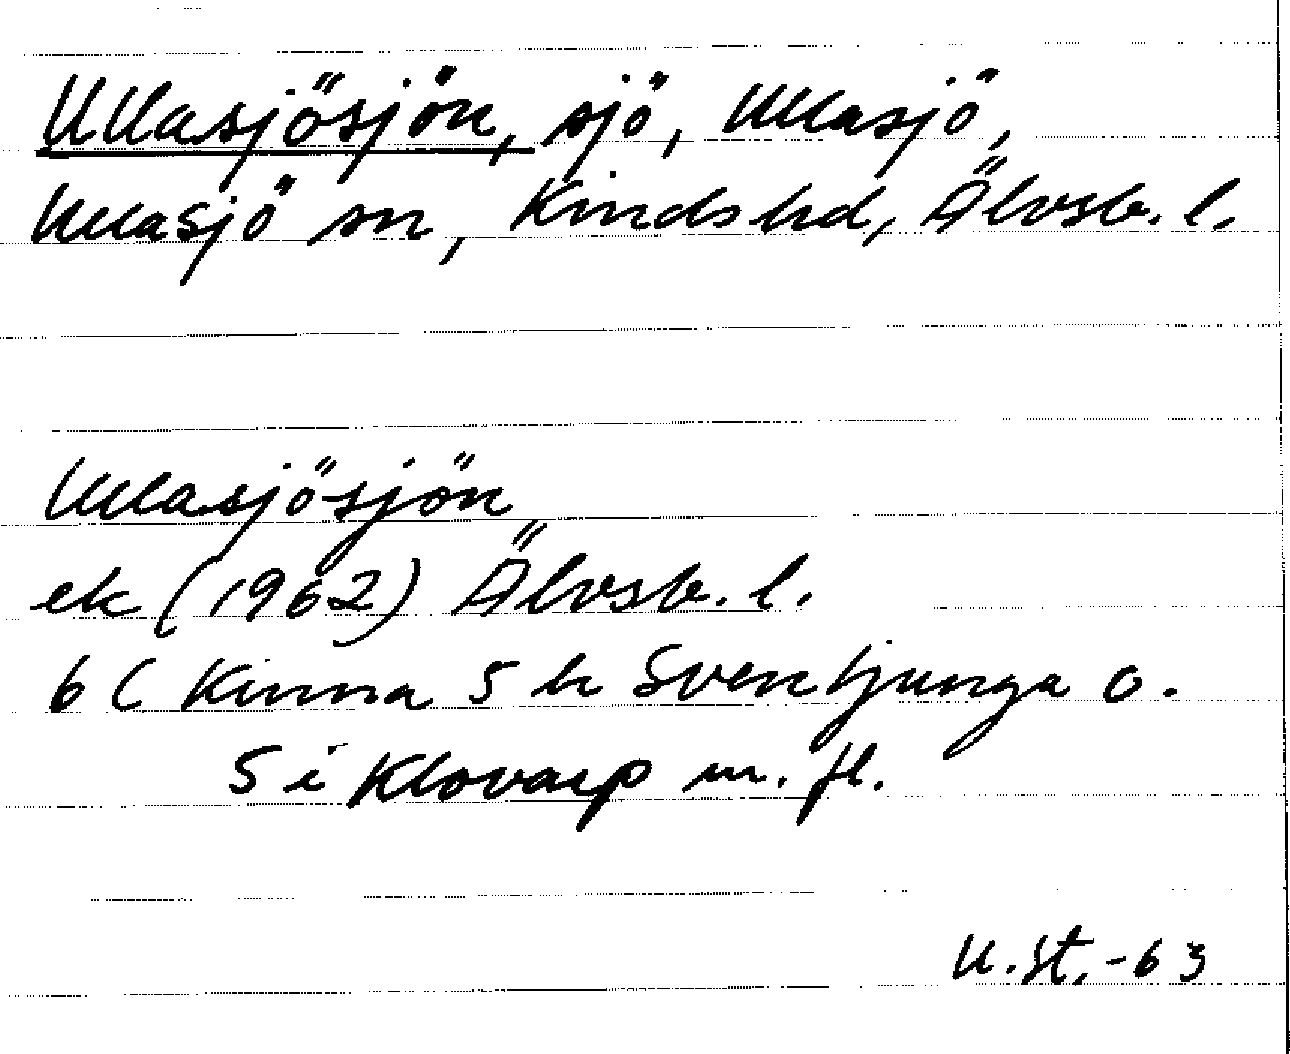 Ullasjösjön, sjö, Ullasjö,
Ullasjö sn, Kinds hd, Älvsb. l.
Ullasjösjön
ek (1962) Älvsb. l.
6 C Kinna 5 h Svenljunga o.
5 i Klovarp m. fl.
U. St. -63